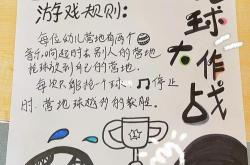 游戏规则：
每位幼儿营地有两个
音乐响起时去别人的营地
抢球放到自己的营地
每次只能抢一个球，🎵停止
时，营地球越多的获胜
球大作战